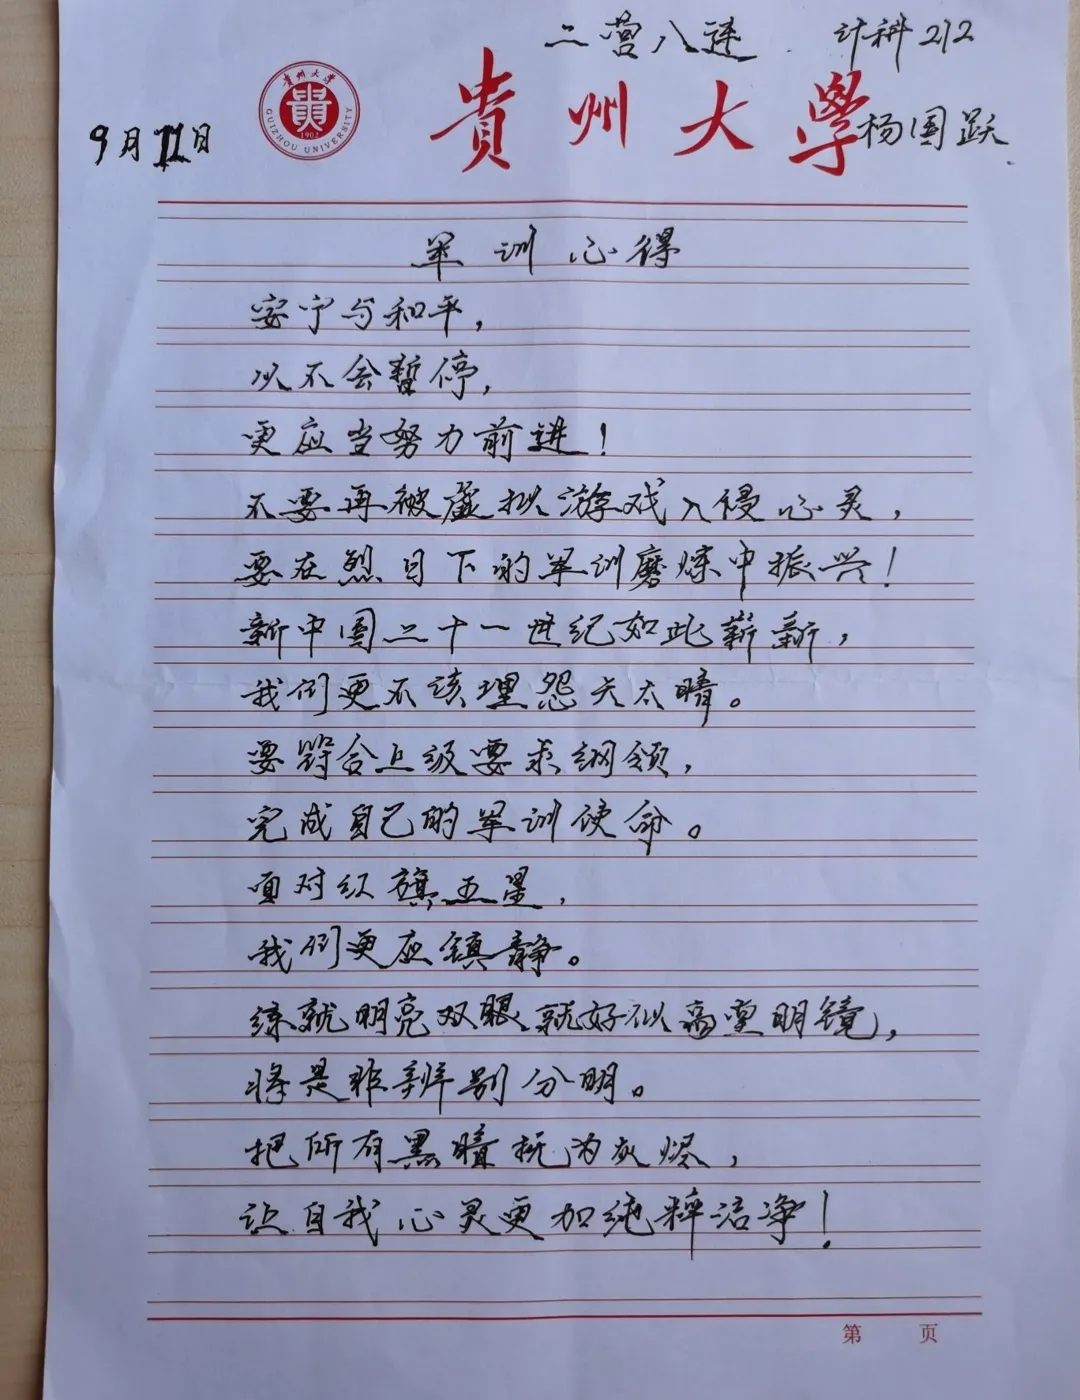 二营八连 计科212
貴州大學
GUIZHOU UNIVERSITY
1902
貴州大学
贵
9月11日
杨国跃
军训心得
安宁与和平，
从不会暂停，
更应当努力前进！
不要再被虚拟游戏入侵心灵，
要在烈日下的军训磨炼中振兴！
新中国二十一世纪如此崭新，
我们更不该埋怨天太晴。
要符合上级要求纲领，
完成自己的军训使命。
面对红旗五星，
我们更应镇静。
练就明亮双眼就好似高堂明镜，
将是非辨别分明。
把所有黑暗抚为灰烬，
让自我心灵更加纯粹洁净！
第 页